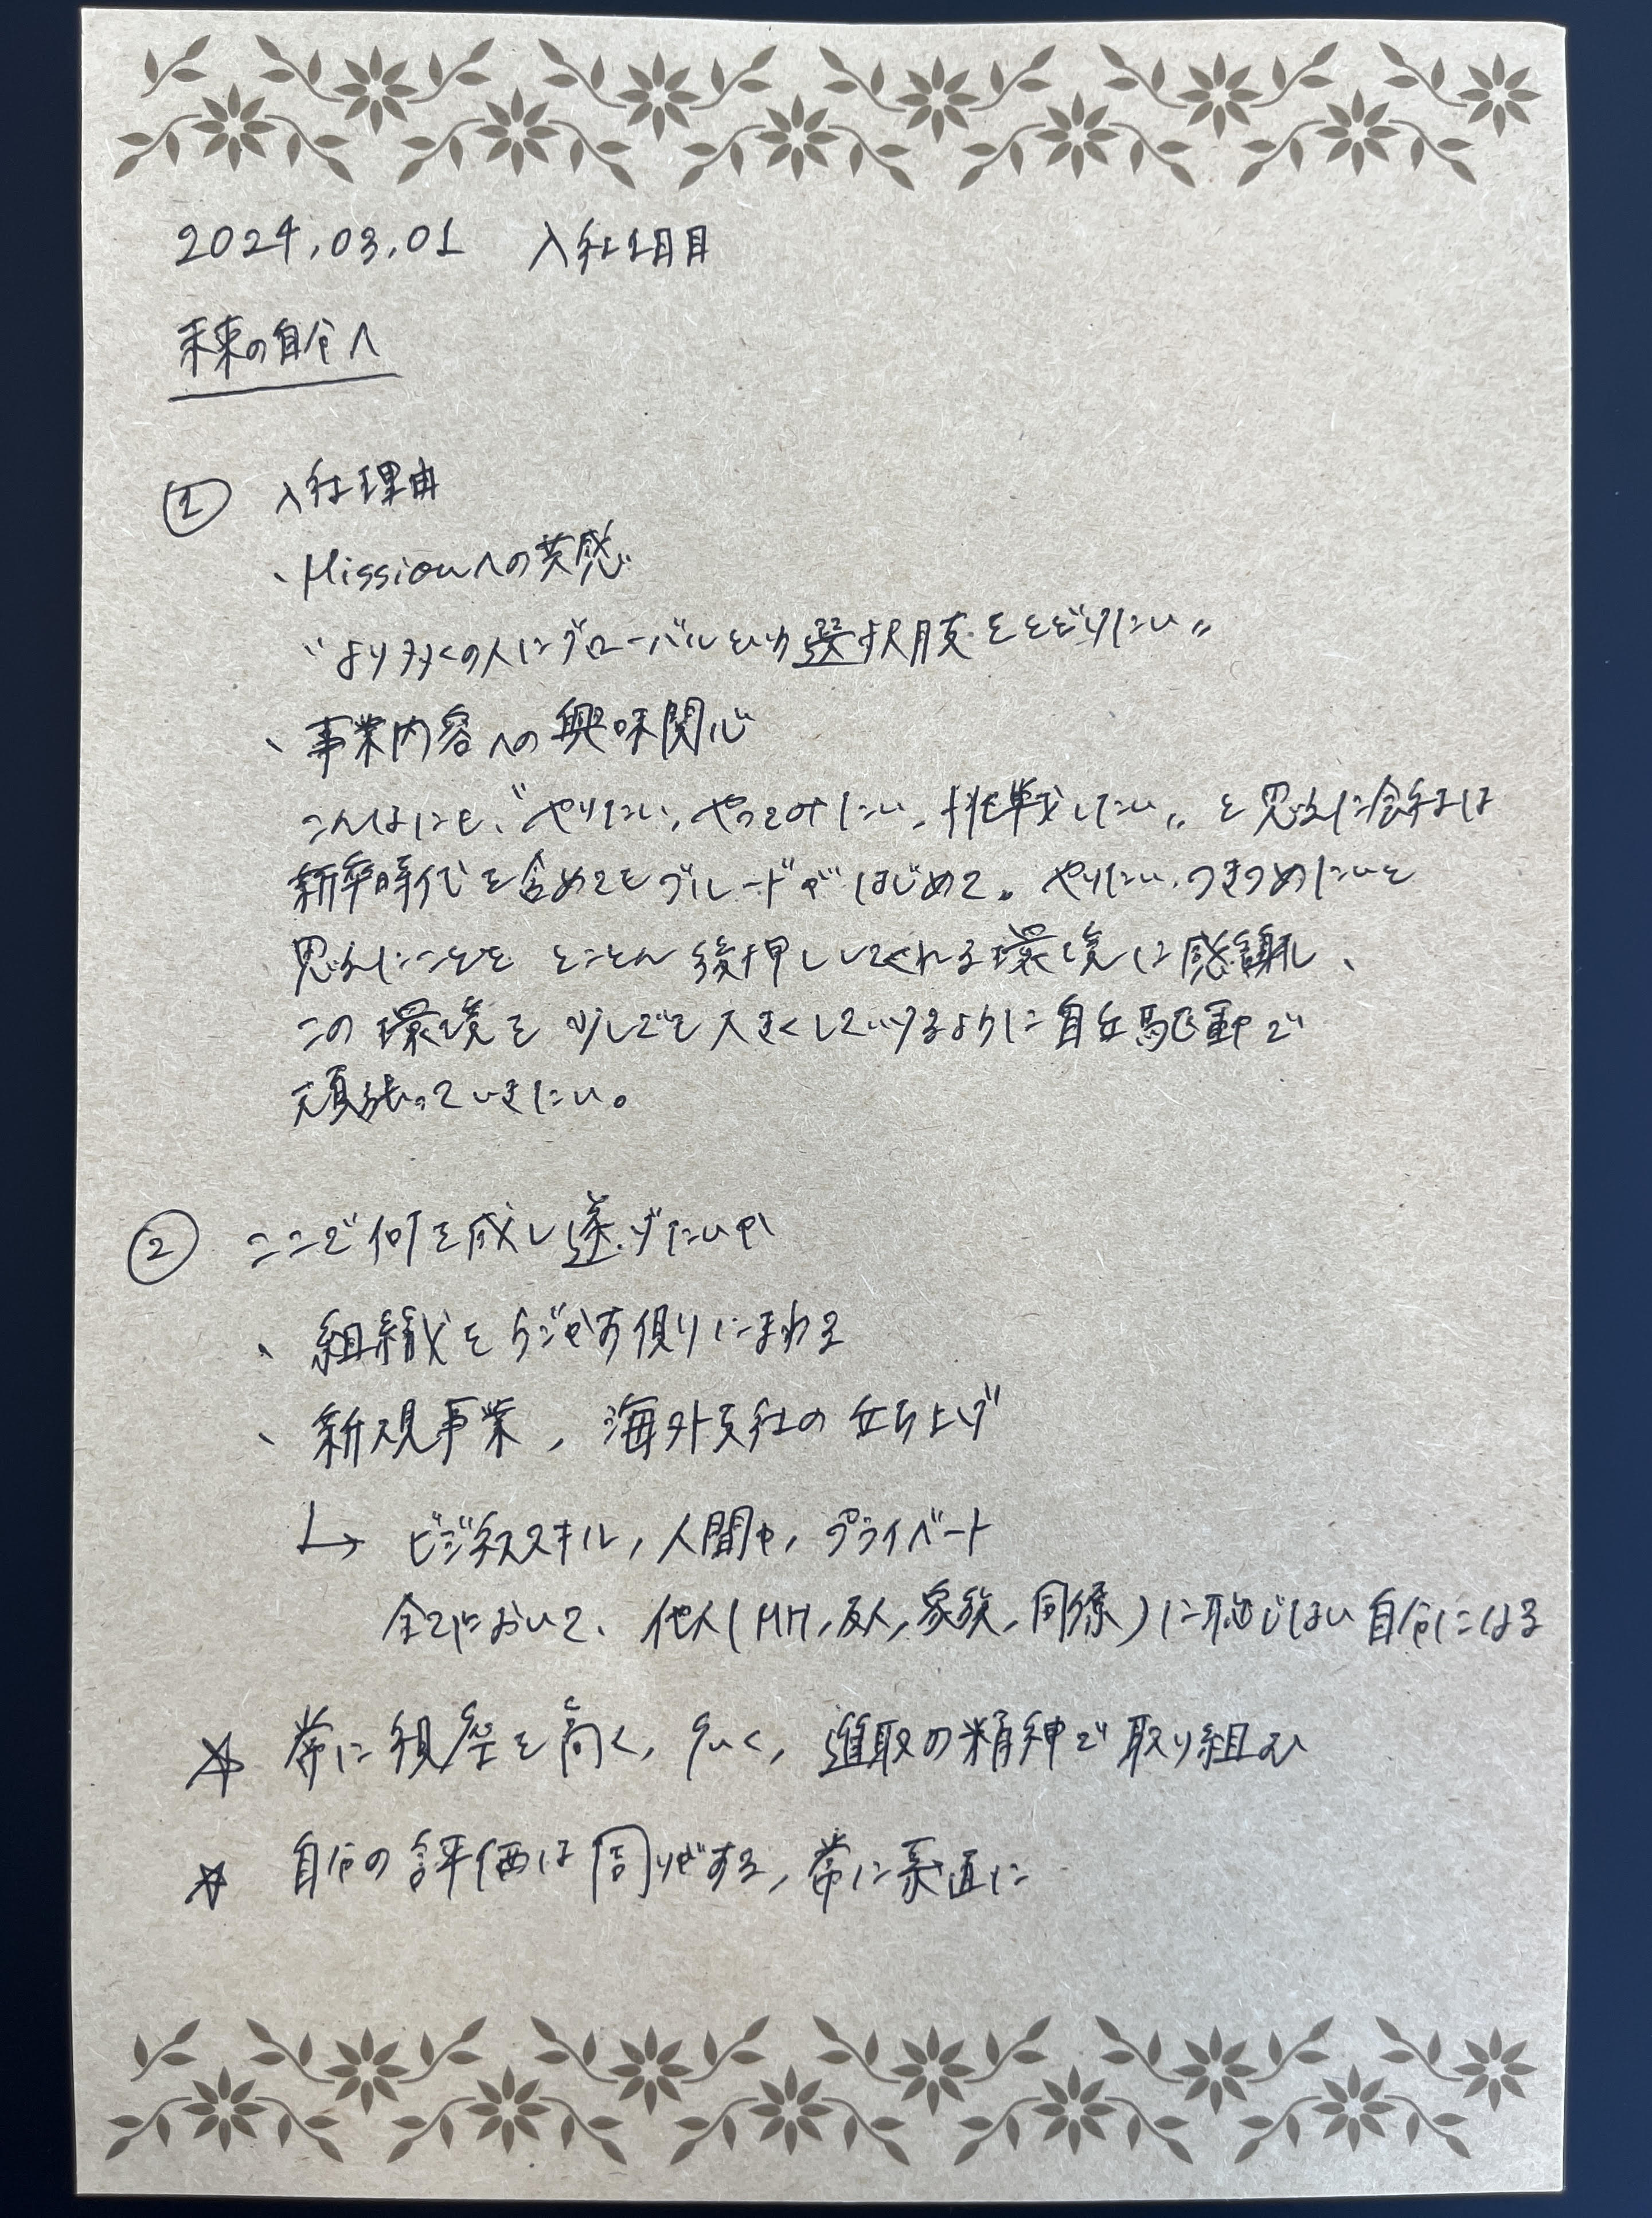 2024.03.01 入社1日目
未来の自分へ
① 入社理由
、Missionへの共感
"より多くの人にグローバルという選択肢をとどけたい"
、事業内容への興味関心
こんなにも、"やりたい、やってみたい、挑戦したい" と思えた会社は
新卒時代を含めてもグレードがはじめて。やりたい、つきつめたいと
思えたことを とことん後押ししてくれる環境に感謝し、
この環境を少しでも大きくしていけるように自立駆動で
頑張っていきたい。
② ここで何を成し遂げたいか
、組織をうごかす側にまわる
、新規事業、海外支社の立ち上げ
↳ ビジネススキル, 人間力, プライベート
全てにおいて、他人(MM, 友人, 家族, 同僚)に恥じない自分になる
☆ 常に視座を高く, 広く, 進取の精神で取り組む
☆ 自分の評価は周りがする, 常に素直に